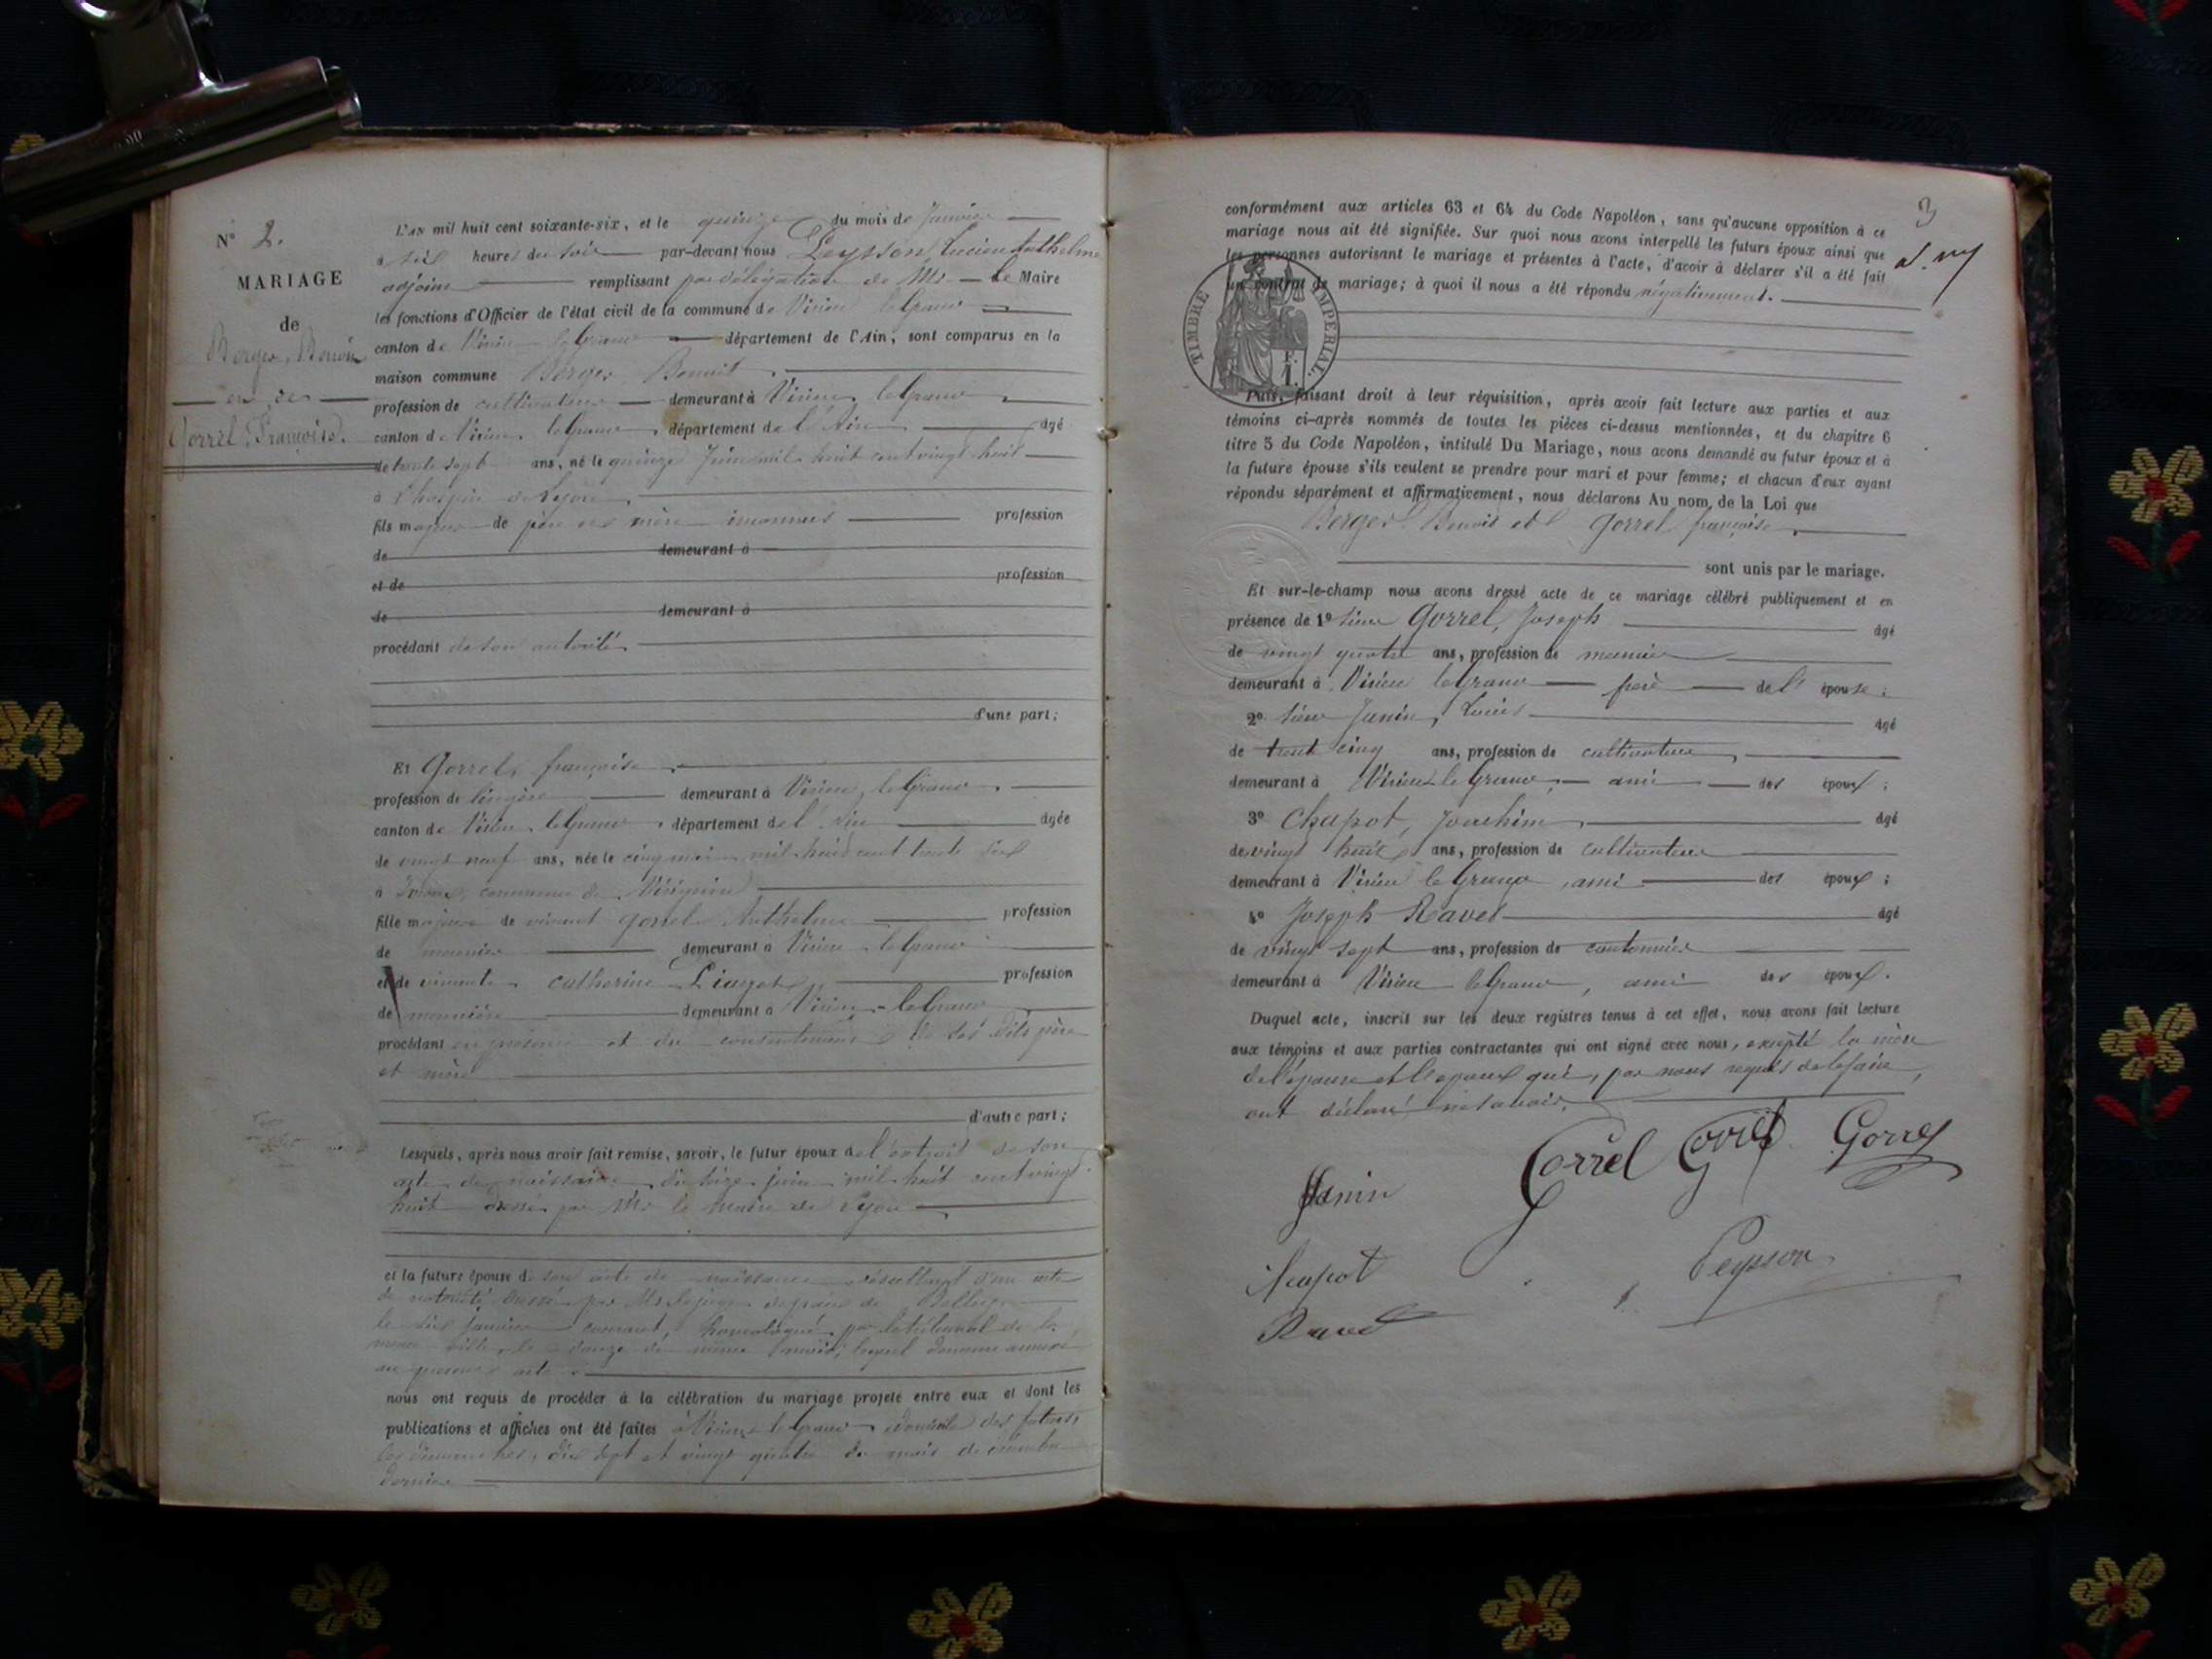 N° 2.
MARIAGE
de
Berger, Benoit
et de
Gorrel, Françoise.
L'AN mil huit cent soixante-six, et le quinze du mois de Janvier
à six heures du soir par-devant nous Peysson, Lucien Anthelme
adjoint remplissant par délégation de Mr le Maire
les fonctions d'Officier de l'état civil de la commune de Virieu le Grand
canton de Virieu le Grand département de l'Ain, sont comparus en la
maison commune Berger Benoit
profession de cultivateur demeurant à Virieu le Grand
canton de Virieu le Grand département de l'Ain âgé
de trente sept ans, né le quinze Juin mil huit cent vingt huit
à l'hospice de Lyon
fils majeur de père et mère inconnus profession
de demeurant à
et de profession
de demeurant à
procédant de son autorité
d'une part;
Et Gorrel, françoise
profession de lingère demeurant à Virieu le Grand
canton de Virieu le Grand département de l'Ain âgée
de vingt neuf ans, née le cinq mil huit cent trente six
à commune de
fille majeure de vivant Gorrel Anthelme profession
de meunier demeurant à Virieu le Grand
et de vivante catherine profession
de meunière demeurant à Virieu-le Grand
procédant en présence et du consentement de ses dits père
et mère
d'autre part;
Lesquels, après nous avoir fait remise, savoir, le futur époux de l'extrait de son
acte de naissance du seize juin mil huit cent vingt
huit dressé par Mr le maire de Lyon
et la future épouse de son acte de naissance résultant d'un acte
de notoriété dressé par Mr le juge de paix de Belley
le six janvier courant, homologué par le tribunal de la
même ville, le douze du même mois, lequel demeure annexé
au présent acte.
nous ont requis de procéder à la célébration du mariage projeté entre eux et dont les
publications et affiches ont été faites à Virieu le Grand domicile des futurs,
les dimanches, dix sept et vingt quatre du mois de décembre
dernier
3
conformément aux articles 63 et 64 du Code Napoléon, sans qu'aucune opposition à ce
mariage nous ait été signifiée. Sur quoi nous avons interpellé les futurs époux ainsi que
les personnes autorisant le mariage et présentes à l'acte, d'avoir à déclarer s'il a été fait
un contrat de mariage; à quoi il nous a été répondu négativement.
TIMBRE IMPERIAL.
1 F.
Puis, faisant droit à leur réquisition, après avoir fait lecture aux parties et aux
témoins ci-après nommés de toutes les pièces ci-dessus mentionnées, et du chapitre 6
titre 5 du Code Napoléon, intitulé Du Mariage, nous avons demandé au futur époux et à
la future épouse s'ils veulent se prendre pour mari et pour femme; et chacun d'eux ayant
répondu séparément et affirmativement, nous déclarons Au nom de la Loi que
Berger Benoit et Gorrel françoise
sont unis par le mariage.
Et sur-le-champ nous avons dressé acte de ce mariage célébré publiquement et en
présence de 1° sieur Gorrel, Joseph âgé
de vingt quatre ans, profession de meunier
demeurant à Virieu le Grand frère de l'épouse;
2° sieur Janin, Louis âgé
de trente cinq ans, profession de cultivateur
demeurant à Virieu le Grand, ami des époux;
3° Chapot, Joachim, âgé
de vingt huit ans, profession de cultivateur
demeurant à Virieu le Grand, ami des époux;
4° Joseph Ravet âgé
de vingt sept ans, profession de cantonnier
demeurant à Virieu le Grand, ami des époux.
Duquel acte, inscrit sur les deux registres tenus à cet effet, nous avons fait lecture
aux témoins et aux parties contractantes qui ont signé avec nous, excepté la mère
de l'épouse et l'époux qui, par nous requis de le faire,
ont déclaré ne savoir.
Gorrel Gorrel Gorrel
Janin
Peysson
Chapot
Ravet